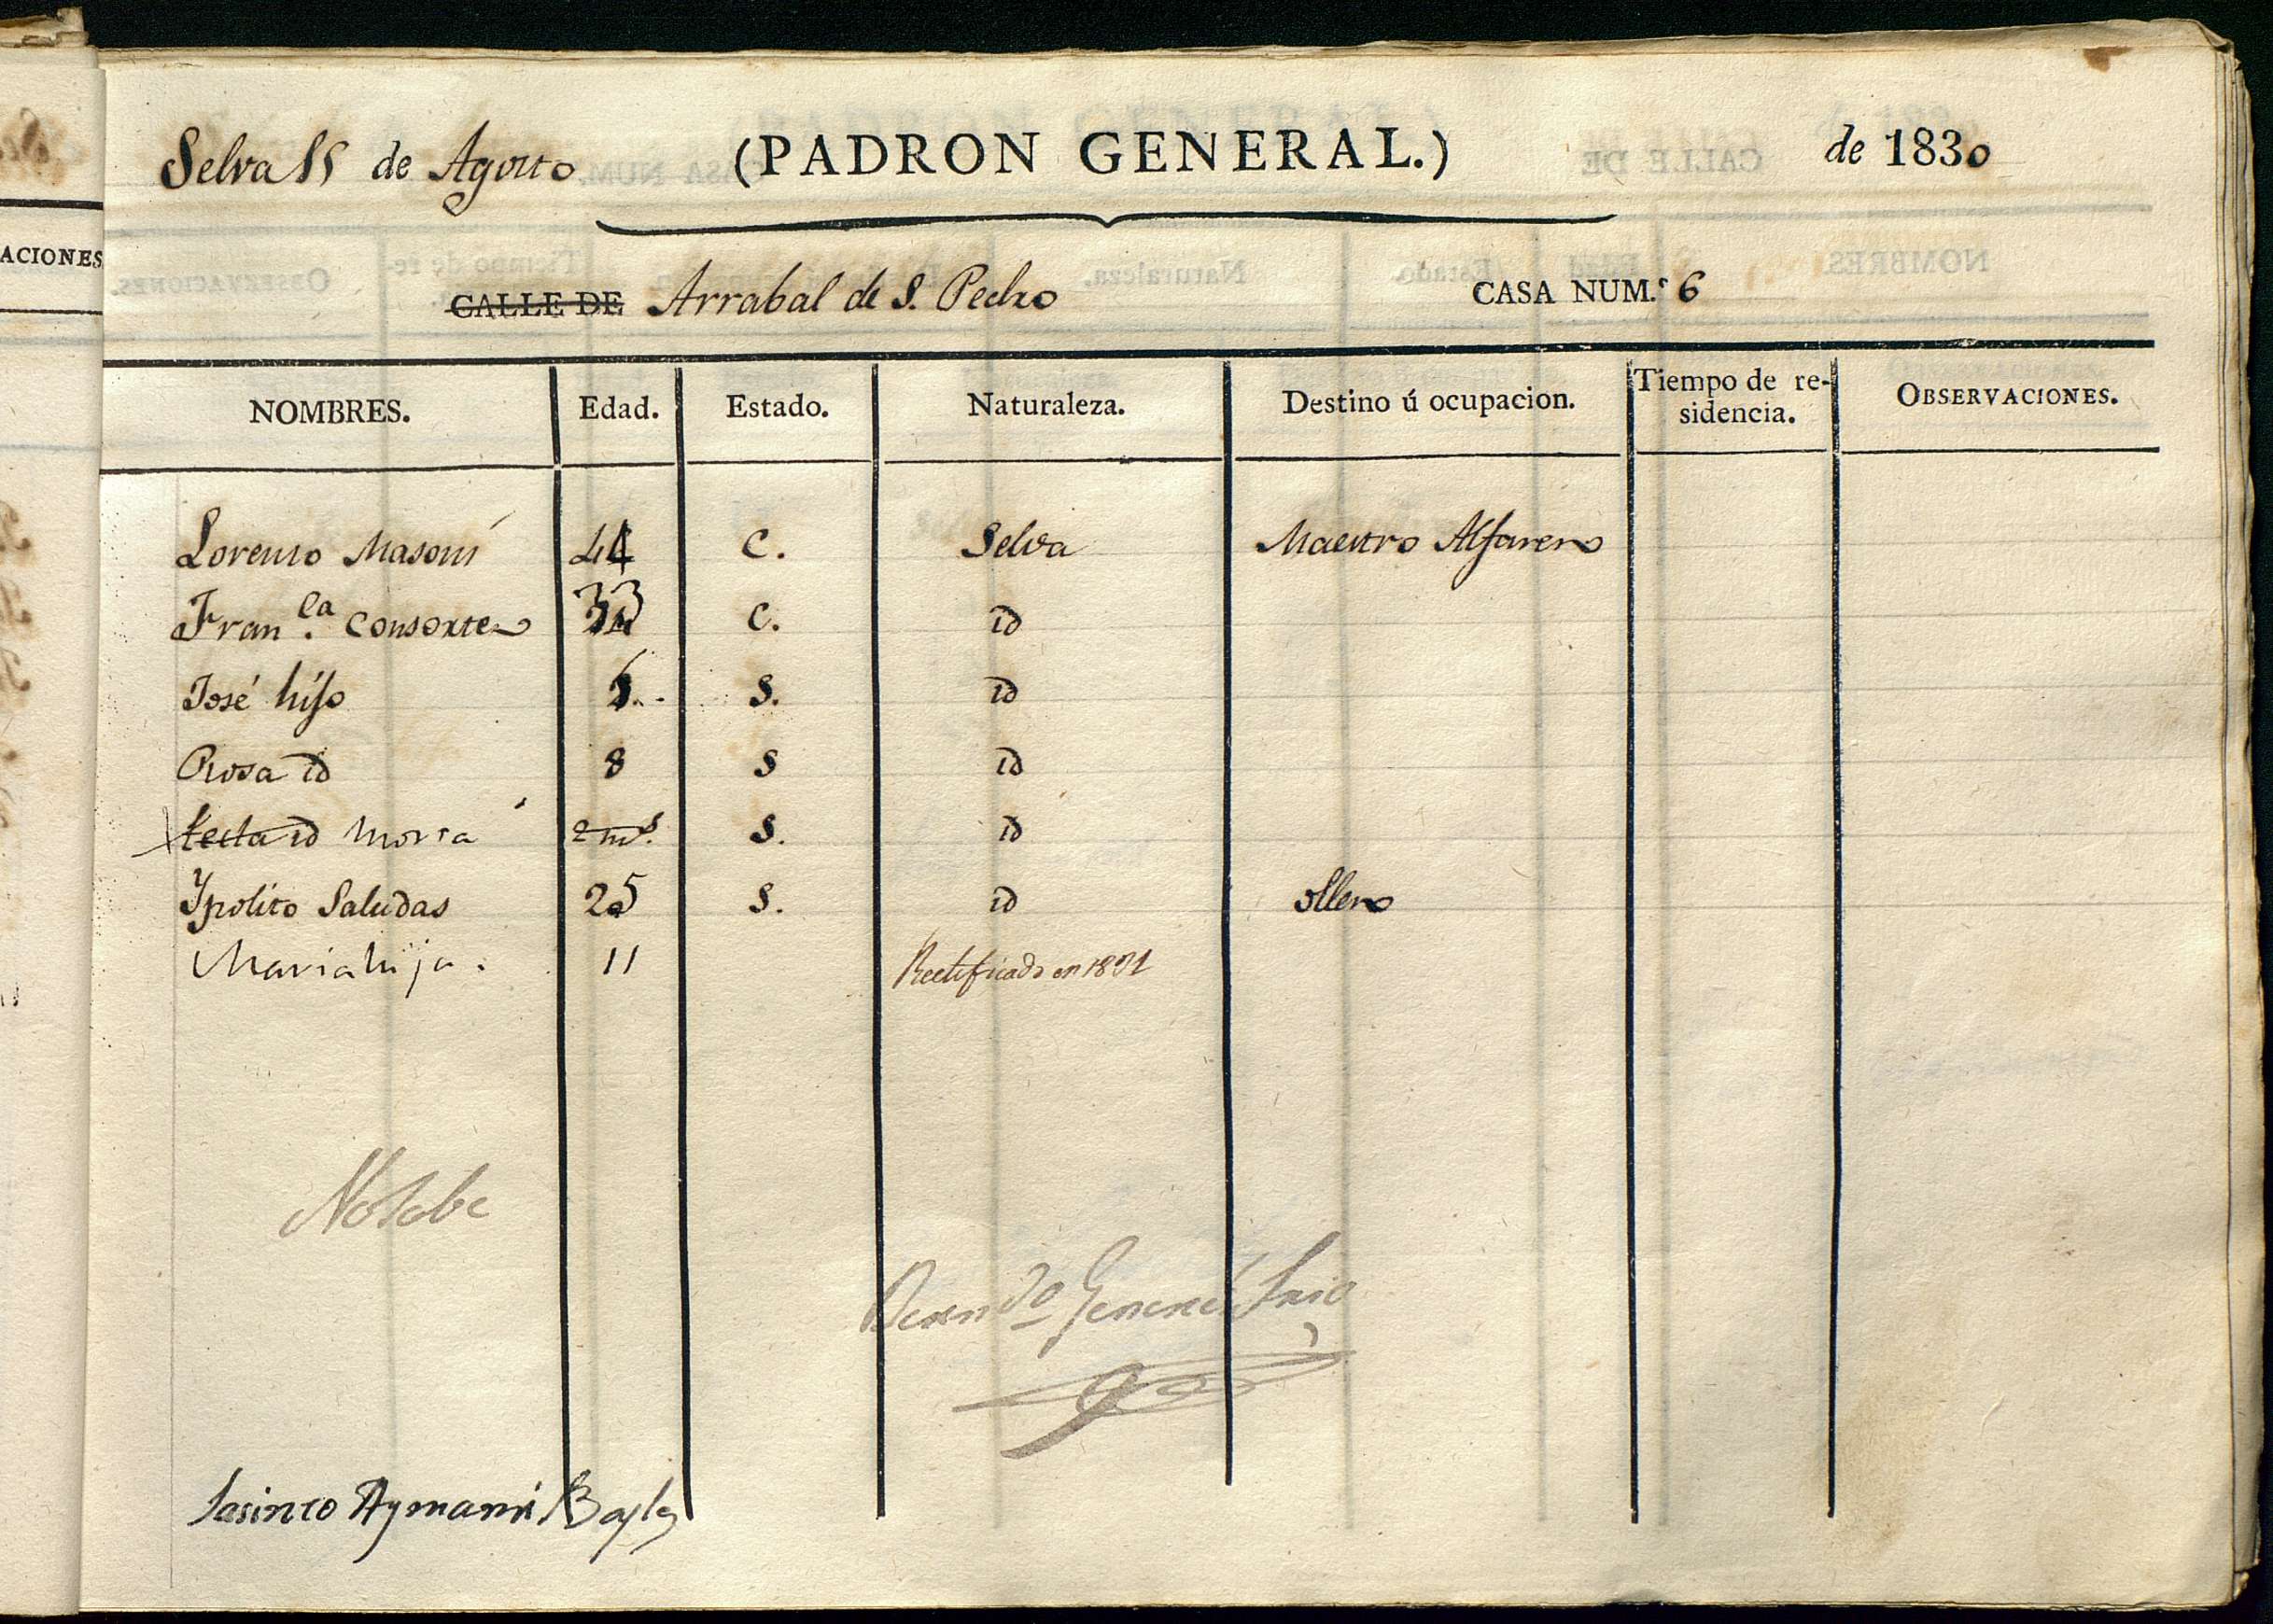 Selva 15 de Agosto (PADRON GENERAL.) de 1830
ACIONES
CALLE DE Arrabal de S. Pedro CASA NUM.º 6
NOMBRES. Edad. Estado. Naturaleza. Destino ú ocupacion. Tiempo de re- OBSERVACIONES.
sidencia.
Lorenso Masoni 44 C. Selva Maestro Alfarero
Fran.ca Consorte 33 C. id
José hijo S. id
Rosa id 8 S id
Tecla id 2 ms. S. id
Ypolito Saludas 25 S. id ollero
Maria hija. 11 Rectificado en 1831
Bern.do Generé Srio
Jasinto Aymamí Bayle